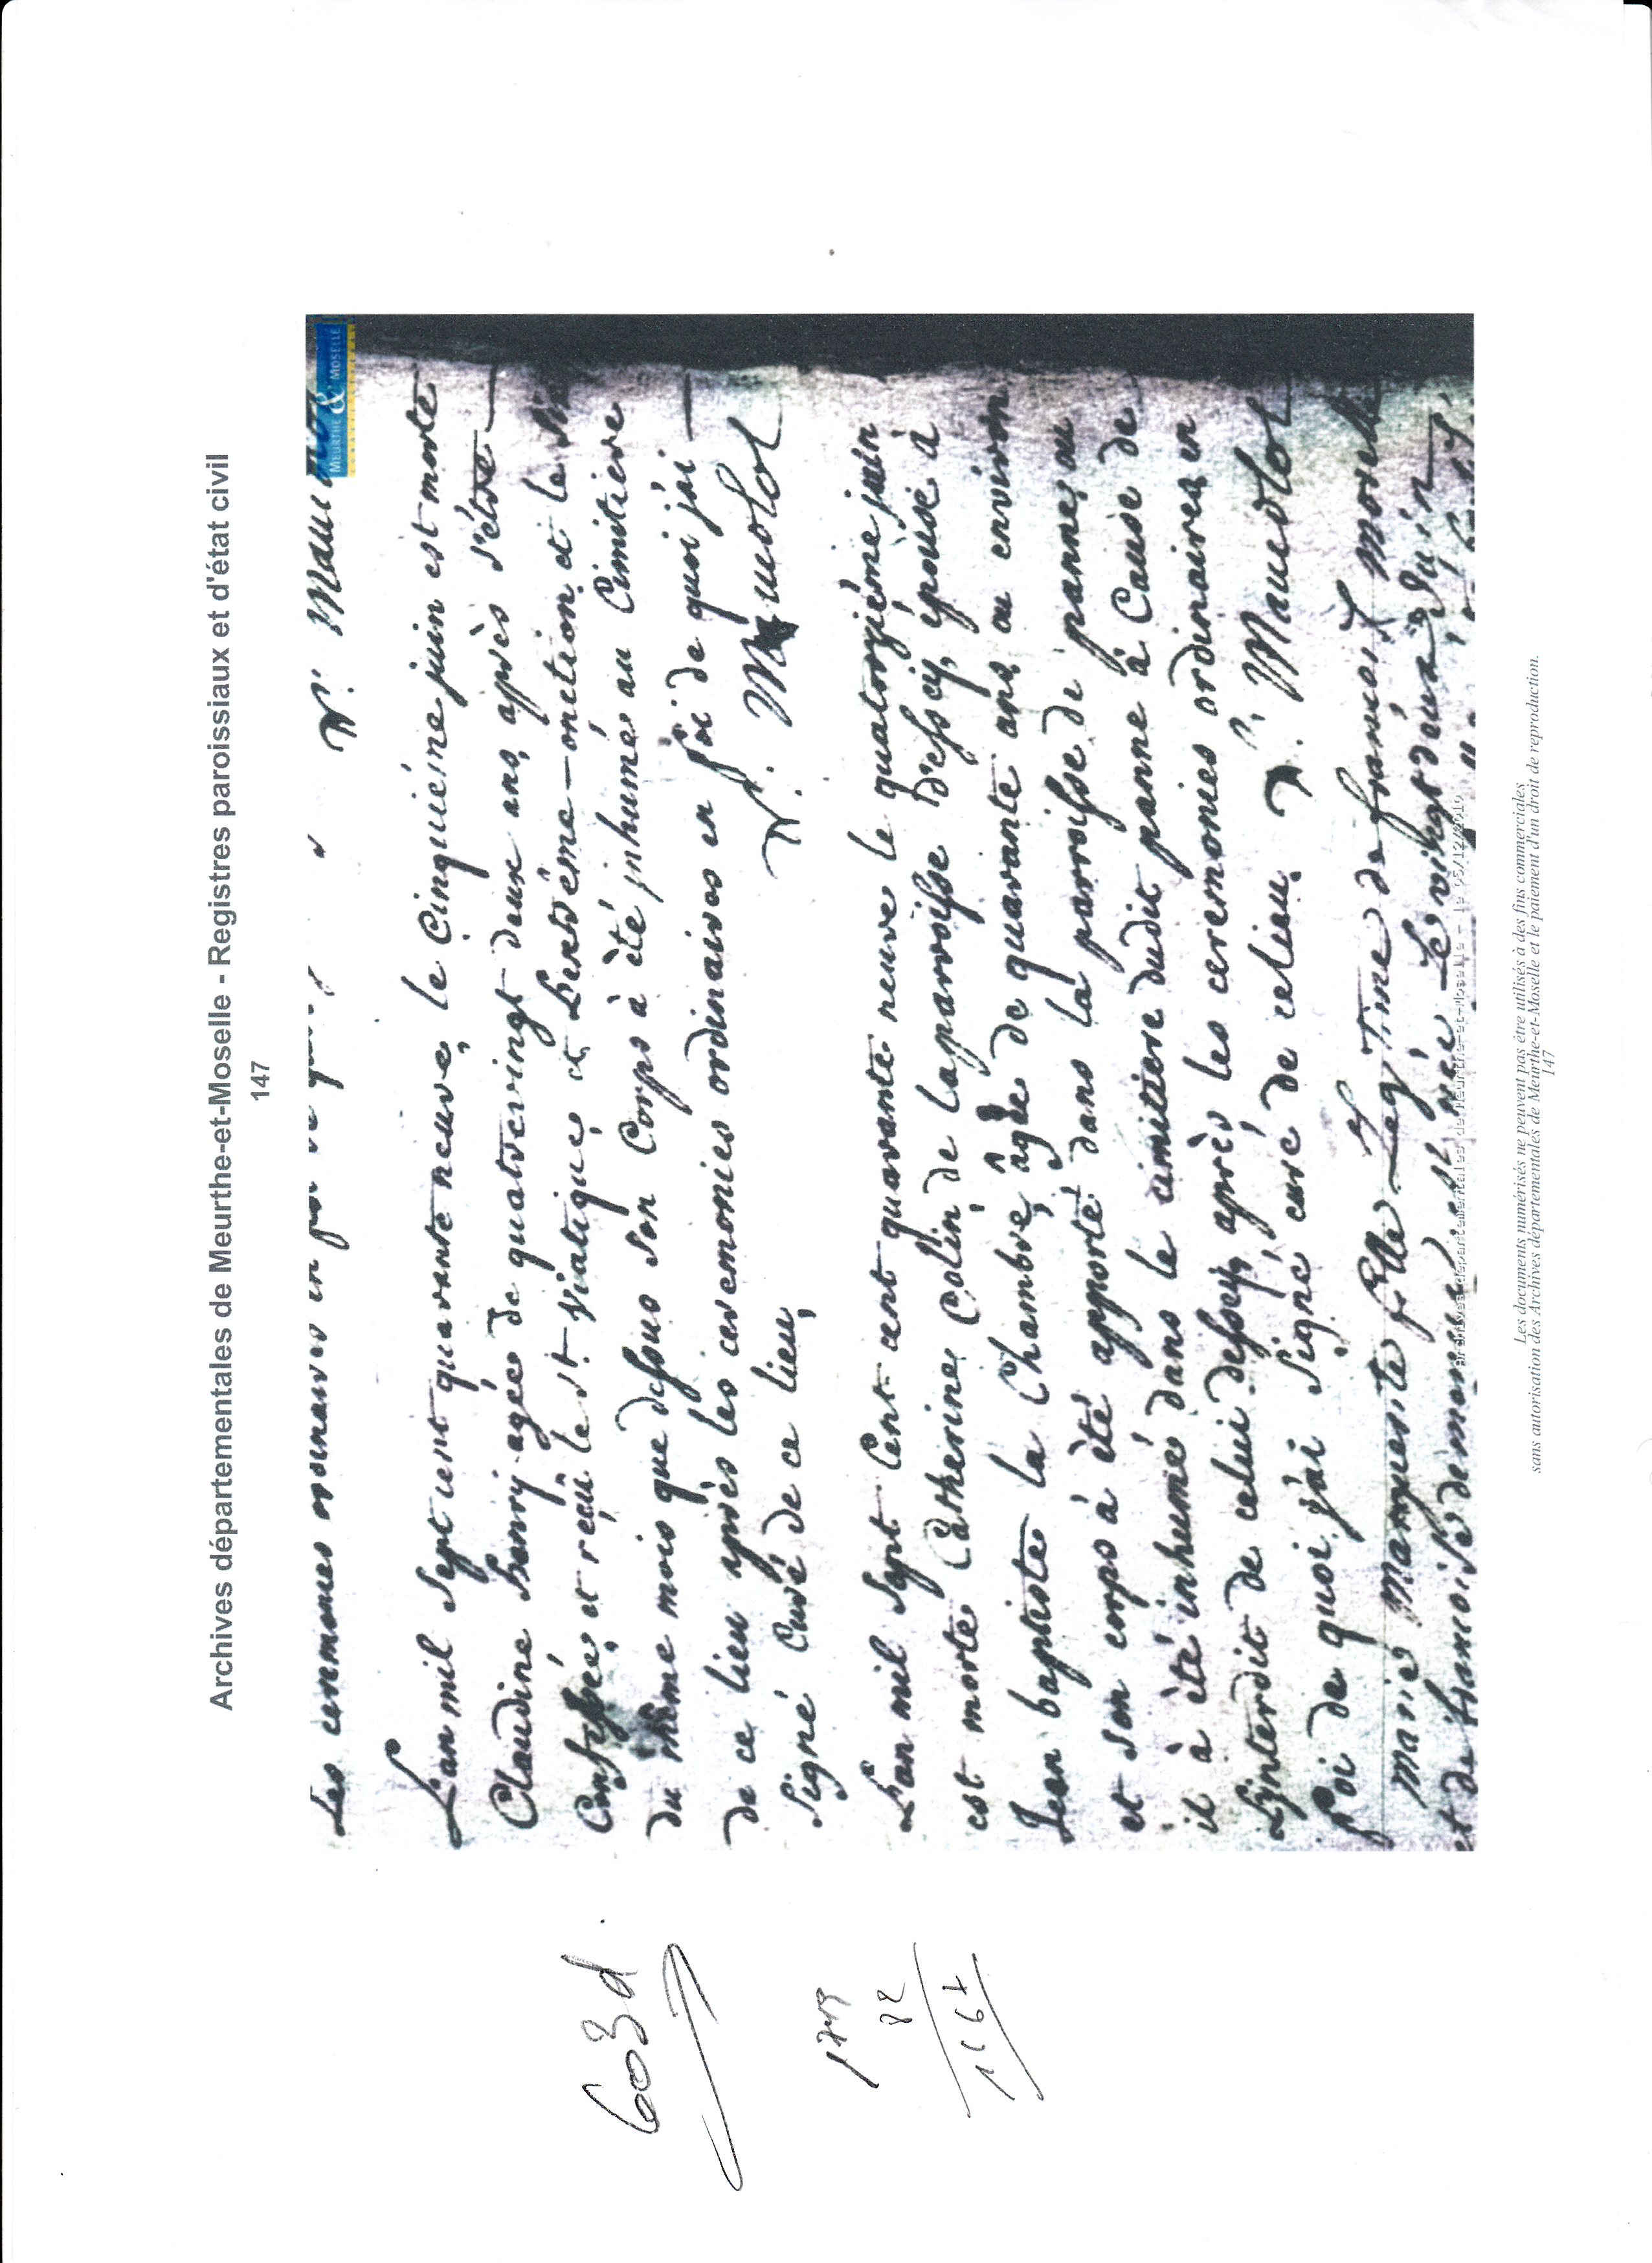 Archives départementales de Meurthe-et-Moselle - Registres paroissiaux et d'état civil
147
MEURTHE & MOSELLE
Les ceremonies ordinaires en foi de quoy
N. Mau
L'an mil Sept cent quarante neuve, le Cinquiéme juin est morte
Claudine henry agée de quatrevingt deux ans, après s'être
Confessée, et reçû le st Viatique, et L'extrême-onction, et le
du même mois que dessus son Corps à èté inhumé au Cimitiere
de ce lieu après les ceremonies ordinaires en foi de quoi j'ai
signé Curé de ce lieu,
N. Maucolot
L'an mil Sept Cent cent quarante neuve le quatorziéme juin
est morte Catherine Colin, de la parroisse D'essey, épouse à
Jean baptiste la Chambre, âgée de quarante ans, ou environ
et son corps à èté apporté dans la parroisse de panne, ou
il à èté inhumé dans le cimitiere dudit panne à Cause de
L'interdit de celui dessey, après les ceremonies ordinaires, en
foi de quoi j'ai signé curé de ce lieu. N. Maucolot
marie marguerite fille Legitime de francois
et de francoise née Le vingt deux Juin
archives départementales de Meurthe-et-Moselle - le 05/12/2010
603d.
1749
82
1667
Les documents numérisés ne peuvent pas être utilisés à des fins commerciales
sans autorisation des Archives départementales de Meurthe-et-Moselle et le paiement d'un droit de reproduction.
147